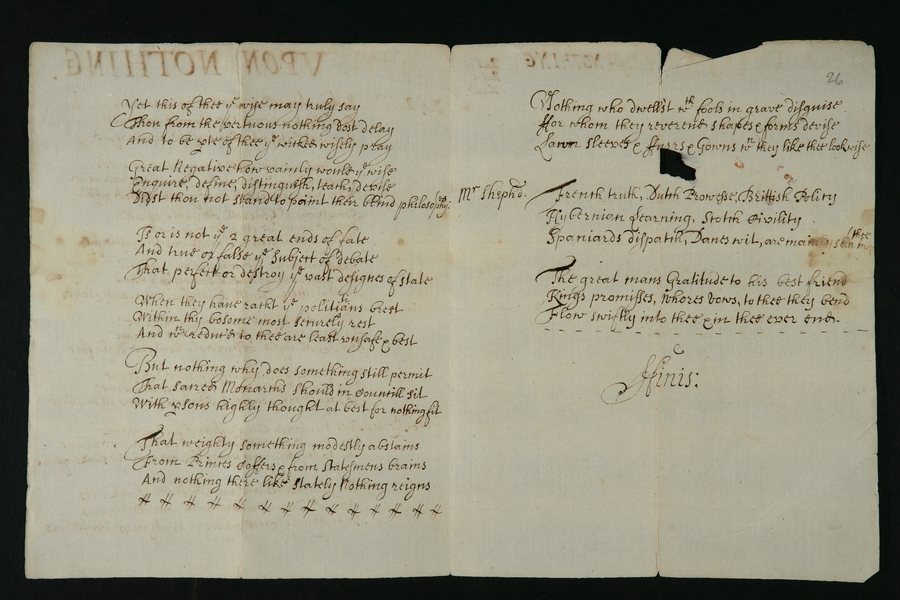 Yet this of thee yᵉ wise may truly say
Thou from the vertuous nothing dost delay
And to be pte of thee yᵉ wicked wisely pray
Great Negative how vainly would yᵉ wise
Enquire, define, distinguish, teach, devise
Didst thou not stand to point their blind philosophy:
Is or is not yᵉ 2 great ends of fate
And true or false yᵉ Subject of debate
That perfect or destroy yᵉ vast designes of state
When they have rackt yᵉ politians brest
Within thy bosome most securely rest
And wⁿ reduc'd to thee are least unsafe & best
But nothing why does something still permit
That sacred Monarchs should in Councill sit
With psons highly thought at best for nothing fit
That weighty something modestly abstains
From Princes Coffers & from Statesmens brains
And nothing there like Stately Nothing reigns
Mʳ Shephd.
26
Nothing who dwellst wᵗʰ fools in grave disguise
ffor whom they reverend shapes & forms devise
Lawn sleeves & ffurrs & Gowns wⁿ they like thee look wise
French truth, Dutch Prowesse, Brittish Policy
Hybernian Learning, Scotch Civility
Spaniards dispatch, Danes wit, are mainly seen in thee
The great mans Gratitude to his best friend
Kings promisses, whores vows, to thee they bend
Flow swiftly into thee & in thee ever end.
ffinis:
VPON NOTHING.
NOTHING